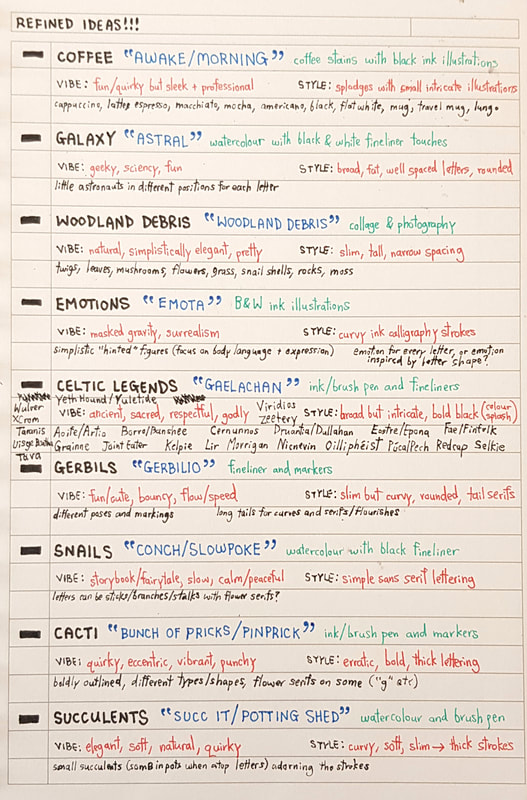 REFINED IDEAS!!!
COFFEE "AWAKE/MORNING" coffee stains with black ink illustrations
VIBE: fun/quirky but sleek + professional STYLE: splodges with small intricate illustrations
cappuccino, latte, espresso, macchiato, mocha, americano, black, flat white, mug, travel mug, lungo
GALAXY "ASTRAL" watercolour with black & white fineliner touches
VIBE: geeky, sciency, fun STYLE: broad, fat, well spaced letters, rounded
little astronauts in different positions for each letter
WOODLAND DEBRIS "WOODLAND DEBRIS" collage & photography
VIBE: natural, simplistically elegant, pretty STYLE: slim, tall, narrow spacing
twigs, leaves, mushrooms, flowers, grass, snail shells, rocks, moss
EMOTIONS "EMOTA" B&W ink illustrations
VIBE: masked gravity, surrealism STYLE: curvy ink calligraphy strokes
simplistic "hinted" figures (focus on body language + expression) emotion for every letter, or emotion
inspired by letter shape?
CELTIC LEGENDS "GAELACHAN" ink/brush pen and fineliners
Yeth Hound/Yuletide
Wulver VIBE: ancient, sacred, respectful, godly Viridios STYLE: broad but intricate, bold black (colour
Xcrom Zeetery splash)
Taranis Aoife/Artio Borvo/Banshee Cernunnos Druantia/Dullahan Eostre/Epona Fae/Finfolk
Uisge Grainne Joint Eater Kelpie Lir Morrigan Nicnevin Oilliphéist Púca/Pech Redcap Selkie
Tava
GERBILS "GERBILIO" fineliner and markers
VIBE: fun/cute, bouncy, flow/speed STYLE: slim but curvy, rounded, tail serifs
different poses and markings long tails for curves and serifs/flourishes
SNAILS "CONCH/SLOWPOKE" watercolour with black fineliner
VIBE: storybook/fairytale, slow, calm/peaceful STYLE: simple sans serif lettering
letters can be sticks/branches/stalks with flower serifs?
CACTI "BUNCH OF PRICKS/PINPRICK" ink/brush pen and markers
VIBE: quirky, eccentric, vibrant, punchy STYLE: erratic, bold, thick lettering
boldly outlined, different types/shapes, flower serifs on some ("g" etc)
SUCCULENTS "SUCC IT/POTTING SHED" watercolour and brush pen
VIBE: elegant, soft, natural, quirky STYLE: curvy, soft, slim → thick strokes
small succulents (some in pots when atop letters) adorning the strokes